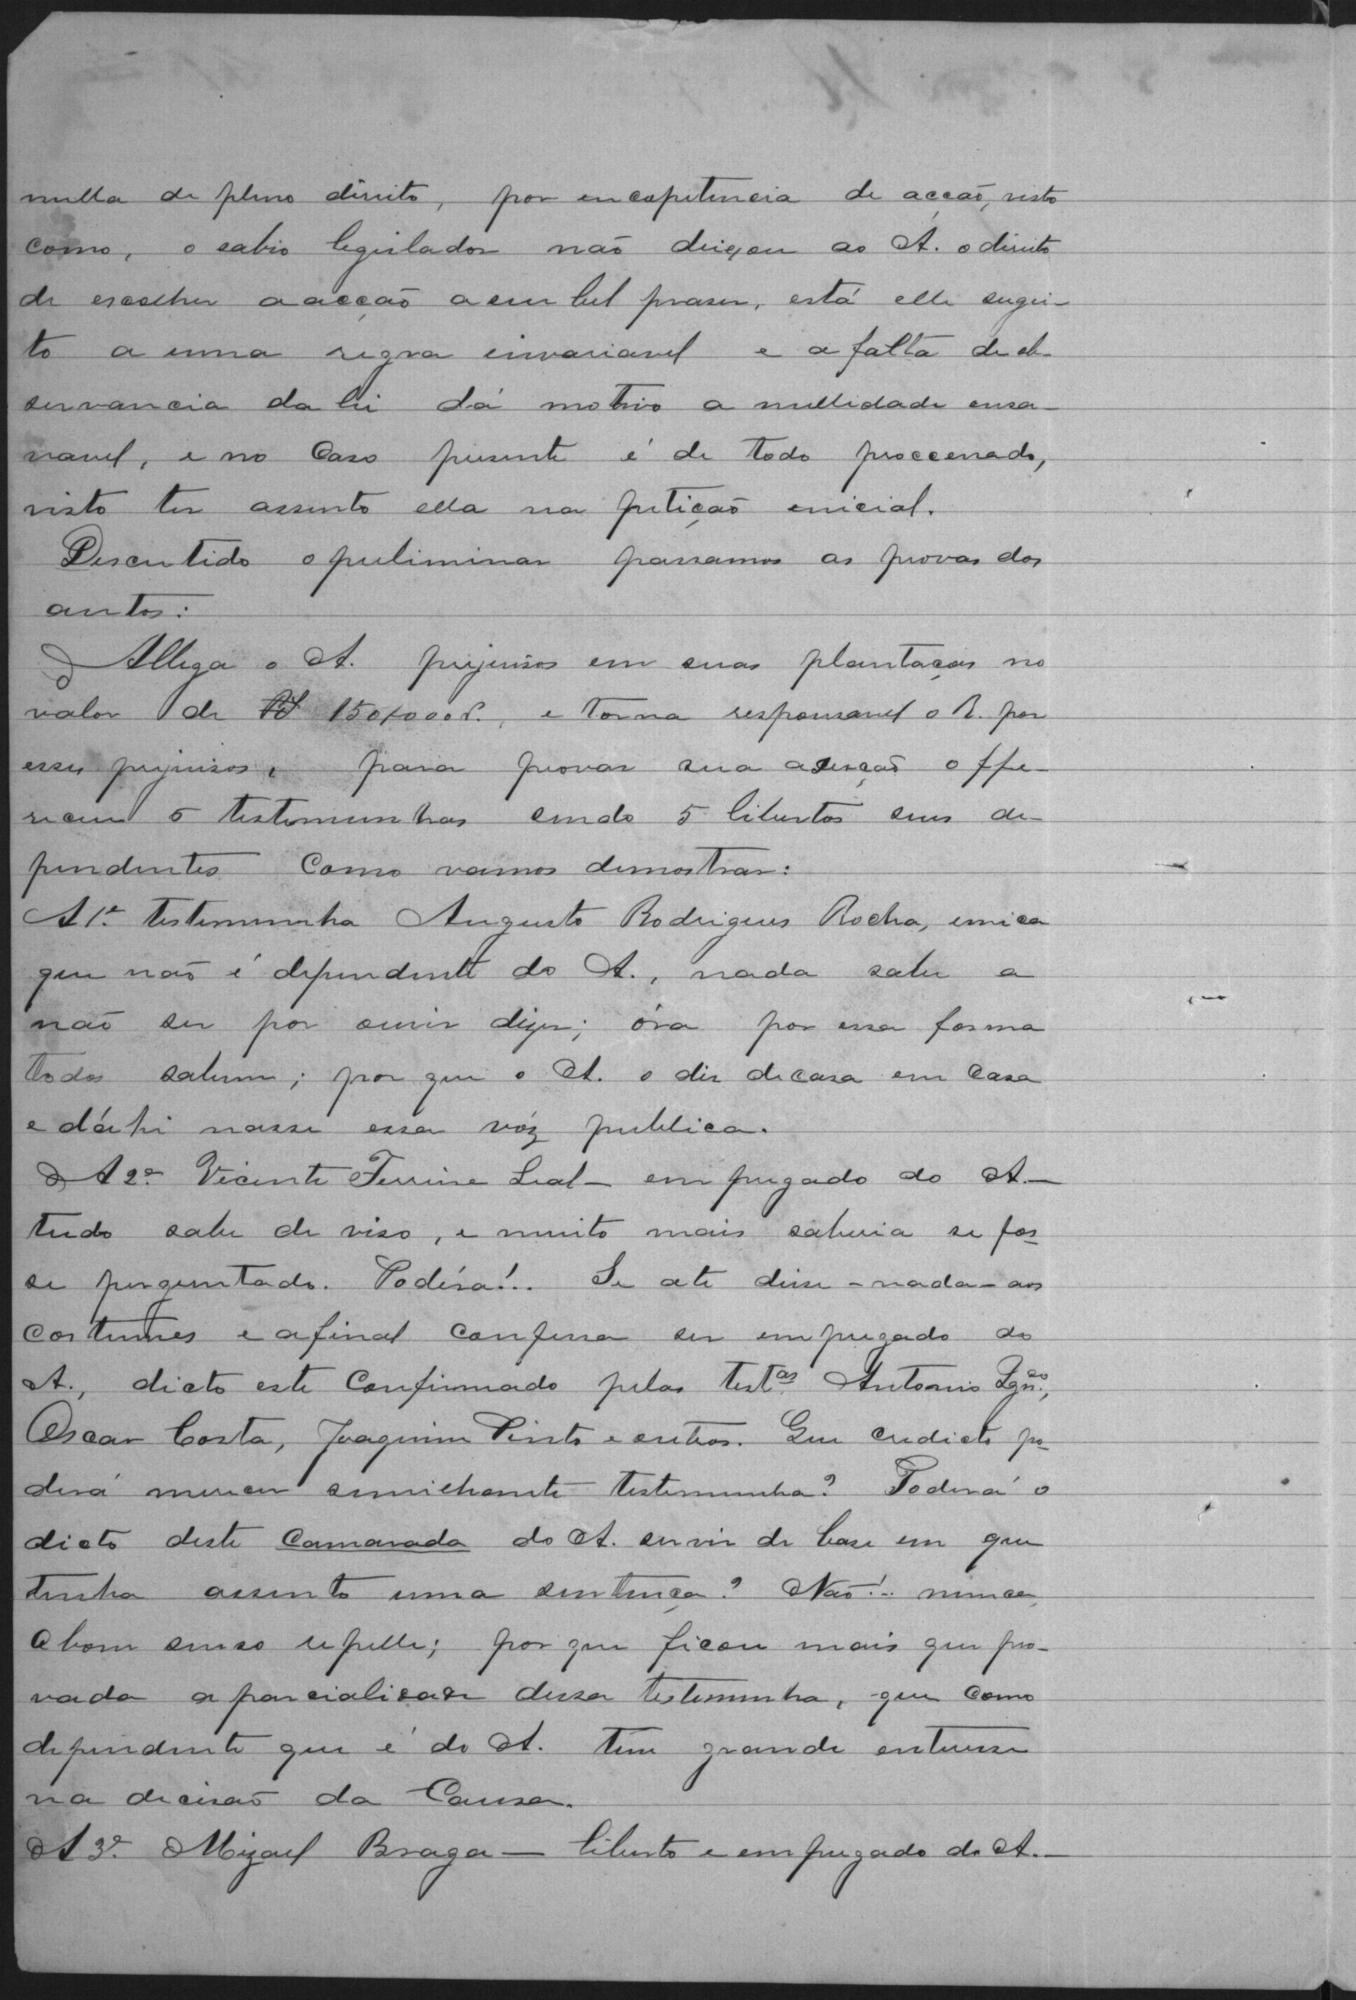 nulla de pleno direito, por encapetencia de acção, visto
como, o sabio legislador não deixou ao A. o direito
de escolher a acção a seu bel praser, está elle sugei-
to a uma regra invariavel e a falta de ob-
servancia da lei dá motivo a nullidade ensa-
navel, e no caso presente é de todo proccenado,
visto ter assento ella na petição enicial.
Descutido o preliminar passamos as provas dos
autos:
Allega o A. prejuisos em suas plantações no
valor de 150$000 r., e torna responsavel o R. por
esses prejuisos, para provar sua aserção offe-
receu 6 testemunhas sendo 5 libertos seus de-
pendentes como vamos demostrar:
A 1ª testemunha Augusto Rodrigues Rocha, unica
que não é dependente do A., nada sabe a
não ser por ouvir dizer; óra por essa forma
todos sabem; por que o A. o dis de casa em casa
e dáhi nasse essa vóz publica.
A 2ª Vicente Ferrire Leal - empregado do A. -
tudo sabe de viso, e muito mais saberia se fos-
se perguntado. Podéra!.. Se até disse - nada - aos
costumes e afinal confessa ser empregado do
A., dicto este confirmado pelas testas Antonio Igncio,
Oscar Costa, Joaquim Pinto e outros. Que credicto po-
derá merecer similhante testemunha? Poderá o
dicto deste camarada do A. servir de base em que
tenha assento uma sentença? Não!.. nunca,
O bom senso repelle; por que ficou mais que pro-
vada a parcialidade dessa testemunha, que como
dependente que é do A. tem grande enteresse
na decisão da Causa.
A 3ª Mizael Braga - liberto e empregado do A. -